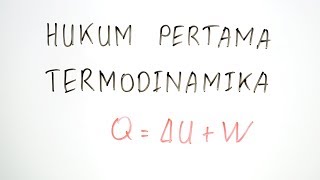 HUKUM PERTAMA
TERMODINAMIKA
Q = ΔU + W